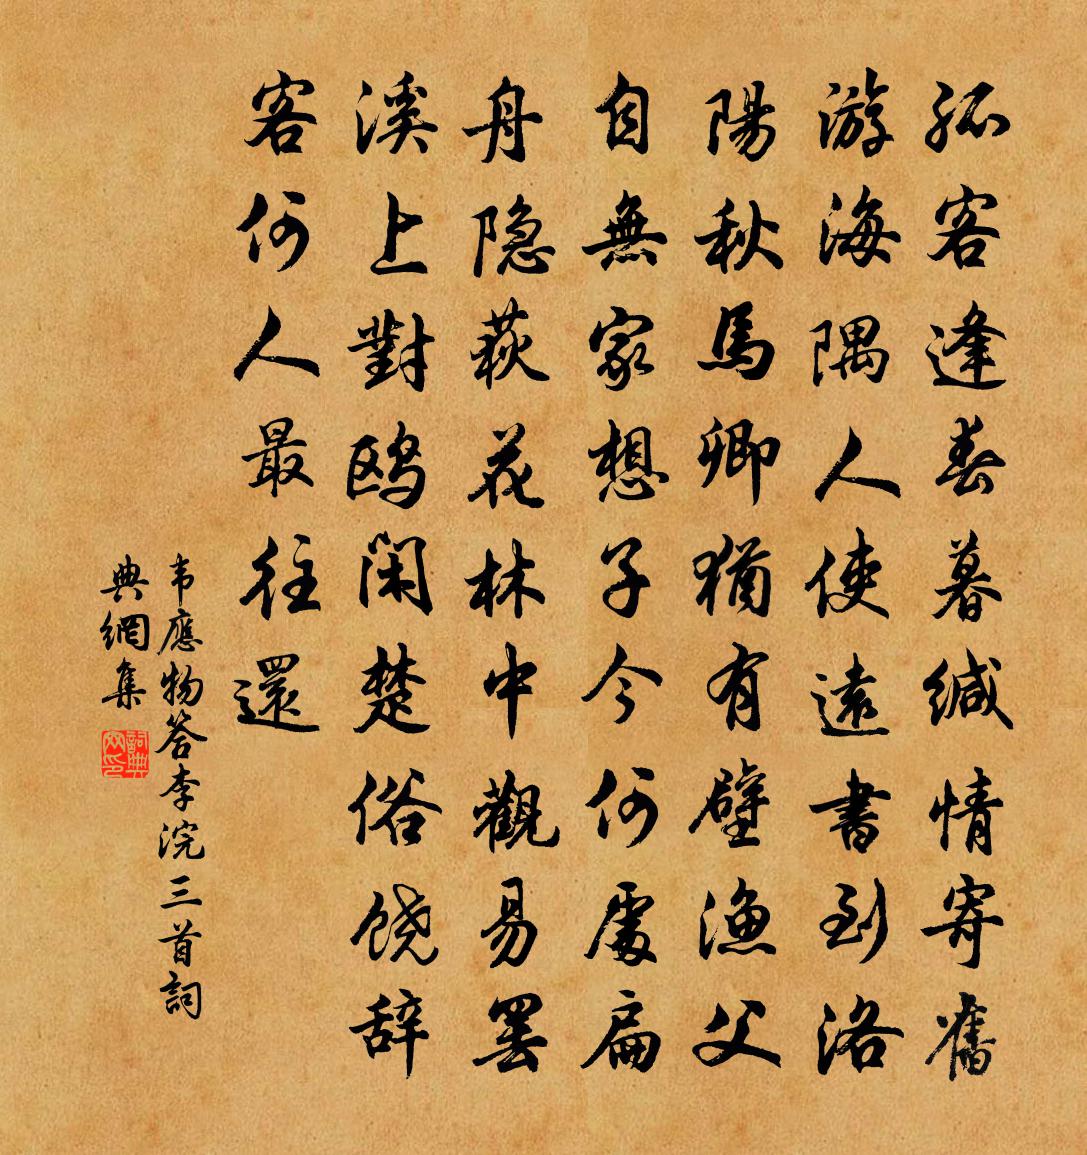 孤客逢春暮缄情寄舊
游海隅人使遠書到洛
陽秋馬卿猶有壁漁父
自無家想子今何處扁
舟隐荻花林中觀易罢
溪上對鸥闲楚俗饶辞
客何人最往還
韦應物答李浣三首詞
典網集
詞典网印